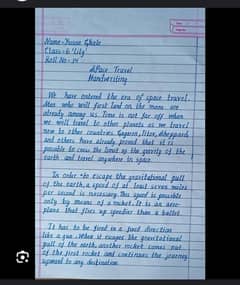 Name-
Class-6 'Lily'
Roll No-
Space Travel
Handwriting
We have entered the era of space travel.
Men who will first land on the moon are
already among us. Time is not far off when
we will travel to other planets as we travel
now to other countries. Gagarin, Titov, Sheppard
and others have already proved that it is
possible to cross the limit of the gravity of the
earth and travel anywhere in space.
In order to escape the gravitational pull
of the earth, a speed of at least seven miles
per second is necessary. This speed is possible
only by means of a rocket. It is an aero-
plane that flies up speedier than a bullet.
It has to be fired in a fixed direction
like a gun. When it escapes the gravitational
pull of the earth, another rocket comes out
of the first rocket and continues the journey
upward to any destination.